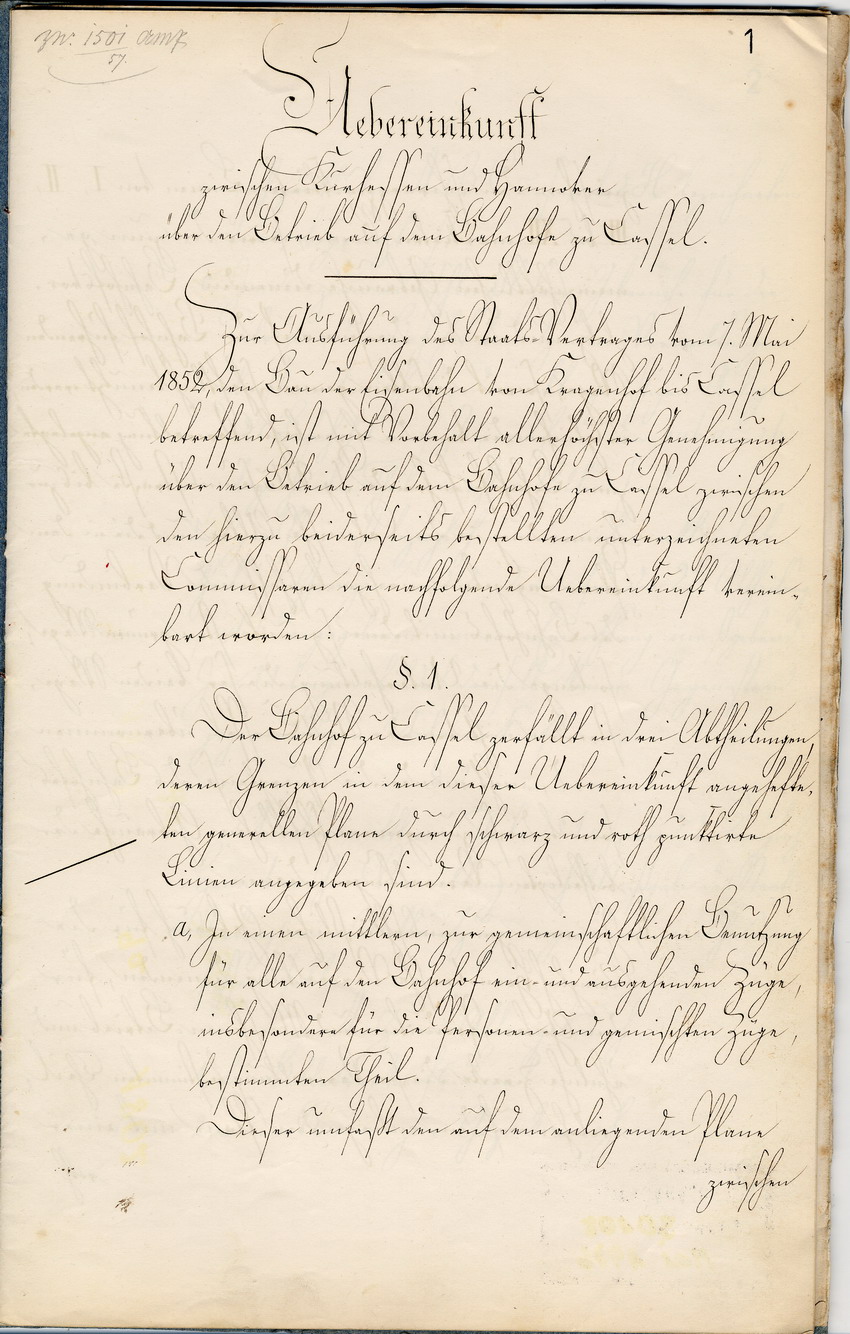 1
zu. 1501 
57.
Uebereinkunft
zwischen Kurhessen und Hannover
über den Betrieb auf dem Bahnhofe zu Cassel.
Zur Ausführung des Staats-Vertrages vom 7. Mai
1852, den Bau der Eisenbahn von Kragenhof bis Cassel
betreffend, ist mit Vorbehalt allerhöchster Genehmigung
über den Betrieb auf dem Bahnhofe zu Cassel zwischen
den hierzu beiderseits bestellten unterzeichneten
Commissaren die nachfolgende Uebereinkunft verein-
bart worden:
§. 1.
Der Bahnhof zu Cassel zerfällt in drei Abtheilungen,
deren Grenzen in dem dieser Uebereinkunft angehefte-
ten generellen Plane durch schwarz und roth punktirte
Linien angegeben sind.
a, In einen mittlern, zur gemeinschaftlichen Benutzung
für alle auf den Bahnhof ein- und ausgehenden Züge,
insbesondere für die Personen- und gemischten Züge,
bestimmten Theil.
Dieser umfaßt den auf dem anliegenden Plane
zwischen